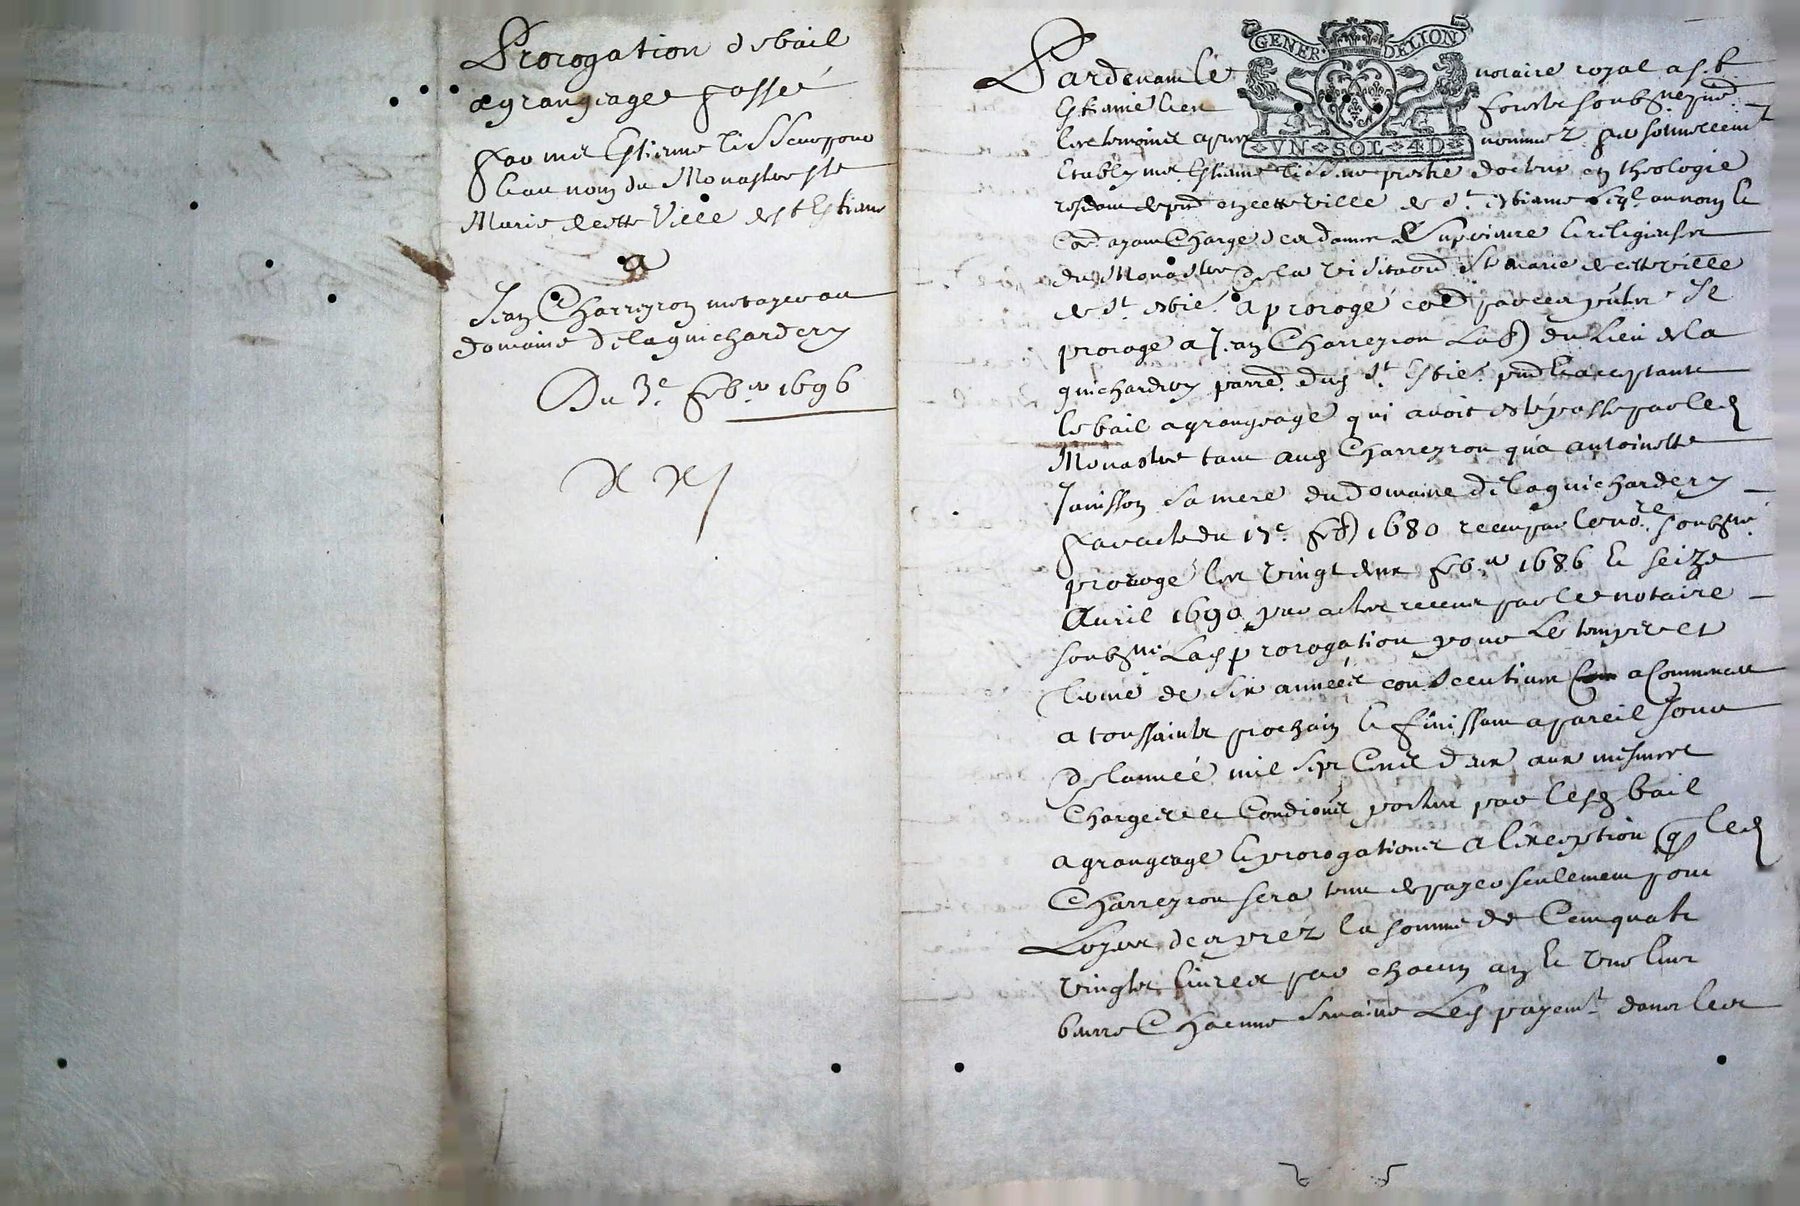 Prorogation de bail
a grangeage passé
par mre Estienne Tissseur pour
le au nom du Monastere ste
Marie de cette Ville de st Estienne
a
Jean Charreyron metayer au
domaine de la guicharderey
Du 3e feber 1696
Pardevant le notaire royal a st
Estienne les forets soubzne pnt
les temoins apres nommez personnellement
Estably mre Estienne Tisseur prestre docteur en theologie
residant en cette ville de st Estienne au nom &
Com ayant Charge des dames Superieure & religieuses
du Monastere de la Visitaon Ste Marie de cette ville
de st Estie. a prorogé comme par ces pntes Il
proroge a Jean Charreyron lab du Lieu de la
guicharderey parre dud st Estie. pnt & acceptant
le bail a grangeage qui avoit esté passé par led
Monastere tant aud Charreyron qu'a antoinette
Janisson sa mere du domaine de la guicharderey
par acte du 17e feb 1680 receu par le nore soubzne
prorogé les vingt deux feber 1686 & seize
Avril 1690 par actes receus par le notaire
soubzne Lad prorogation pour Le temps et
terme de six années consecutives a Commencer
a toussaints prochain & finissant a pareil Jour
de l'année mil sept Cents deux aux mesmes
Charges et Condions portés par lesd bail
a grangeage & prorogations a l'exception q led
Charreyron sera tenu de payer seulement pour
Loyer des prez la somme de Cent quatre
vingts livres par chacun an & une livre
burre Chacune semaine Led payemt dans les
GENER DELION
VN SOL 4D